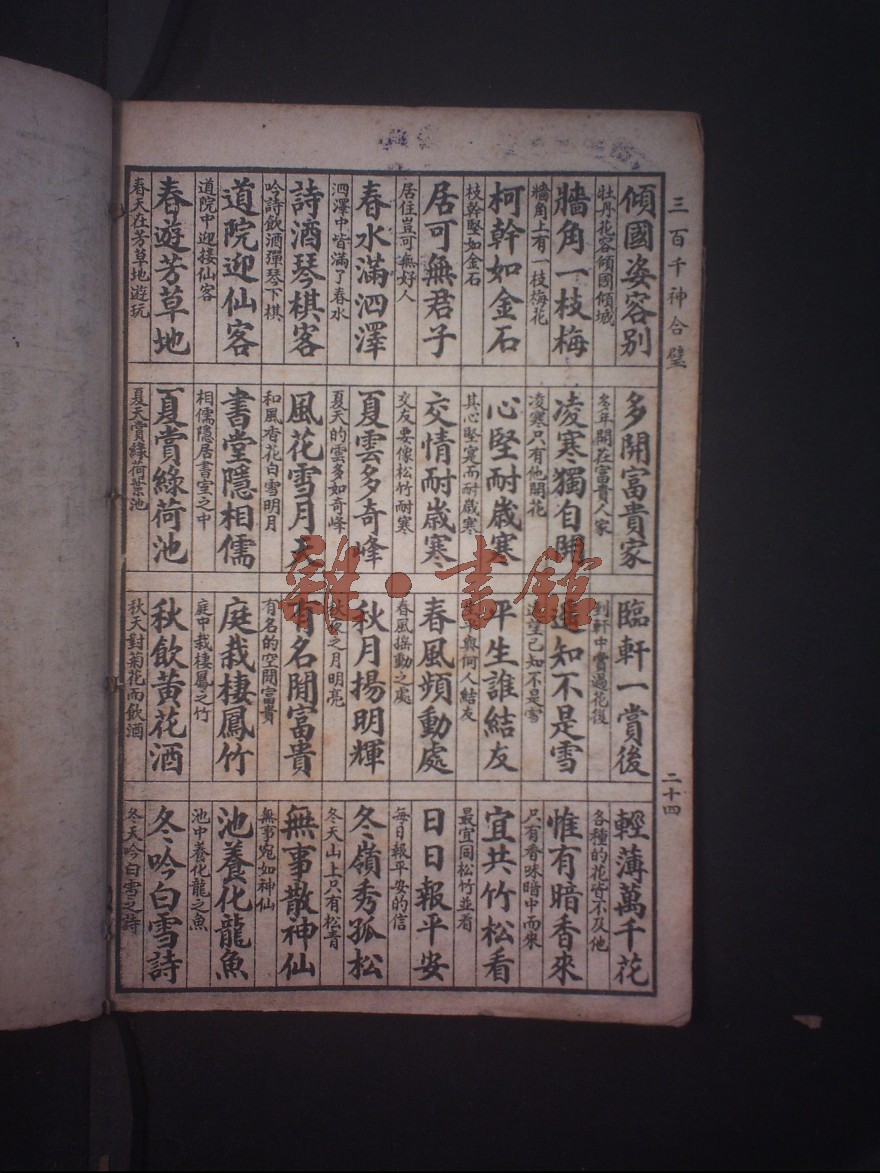 三百千神合璧
傾國姿容別
牡丹花容傾國傾城
多開富貴家
多年開在富貴人家
臨軒一賞後
到軒中賞過花後
輕薄萬千花
各種的花皆不及他
牆角一枝梅
牆角上有一枝梅花
凌寒獨自開
凌寒只有他開花
遥知不是雪
遥望已知不是雪
惟有暗香來
只有香味暗中而來
柯幹如金石
枝幹堅如金石
心堅耐歲寒
其心堅寔而耐歲寒
平生誰結友
生平與何人結友
宜共竹松看
最宜同松竹並看
居可無君子
居住豈可無好人
交情耐歲寒
交友要像松竹耐寒
春風頻動處
春風搖動之處
日日報平安
每日報平安的信
春水滿泗澤
泗澤中皆滿了春水
夏雲多奇峰
夏天的雲多如奇峰
秋月揚明輝
秋夜之月明亮
冬嶺秀孤松
冬天山上只有松青
詩酒琴棋客
吟詩飲酒彈琴下棋
風花雪月天
和風香花白雪明月
有名閒富貴
有名的空閒富貴
無事散神仙
無事宛如神仙
道院迎仙客
道院中迎接仙客
書堂隱相儒
相儒隱居書室之中
庭栽棲鳳竹
庭中栽棲鳳之竹
池養化龍魚
池中養化龍之魚
春遊芳草地
春天在芳草地遊玩
夏賞綠荷池
夏天賞綠荷葉池
秋飲黃花酒
秋天對菊花而飲酒
冬吟白雪詩
冬天吟白雪之詩
二十四
雜·書館